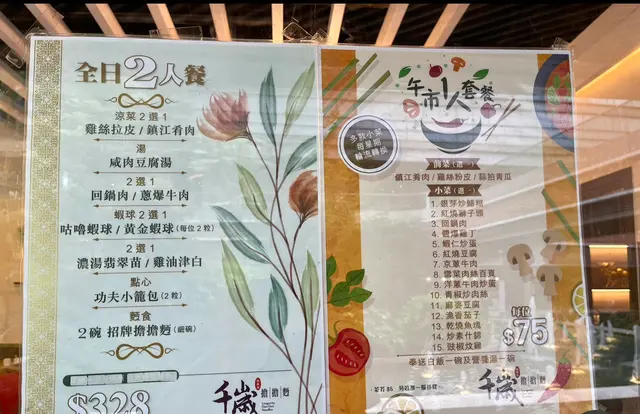 全日2人餐
涼菜 2 選 1
雞絲拉皮 / 鎮江肴肉
湯
咸肉豆腐湯
2 選 1
回鍋肉 / 蔥爆牛肉
蝦球 2 選 1
咕嚕蝦球 / 黃金蝦球 (每位 2 粒)
2 選 1
濃湯翡翠苗 / 雞油津白
點心
功夫小籠包 (2 粒)
麵食
2 碗 招牌擔擔麵 (細碗)
$328
千歲
擔擔麵
午市1人套餐
多款小菜
每星期
輪流轉換
前菜 (選一)
鎮江肴肉 / 雞絲粉皮 / 蒜拍青瓜
小菜 (選一)
1. 銀芽炒鱔糊
2. 紅燒獅子頭
3. 回鍋肉
4. 醬爆雞丁
5. 蝦仁炒蛋
6. 紅燒豆腐
7. 京蔥牛肉
8. 雪菜肉絲百頁
9. 洋蔥牛肉炒蛋
10. 青椒炒肉絲
11. 麻婆豆腐
12. 漁香茄子
13. 乾燒魚塊
14. 炒素什錦
15. 豉椒炆雞
每位
$75
奉送白飯一碗及罋罋湯一碗
千歲
擔擔麵